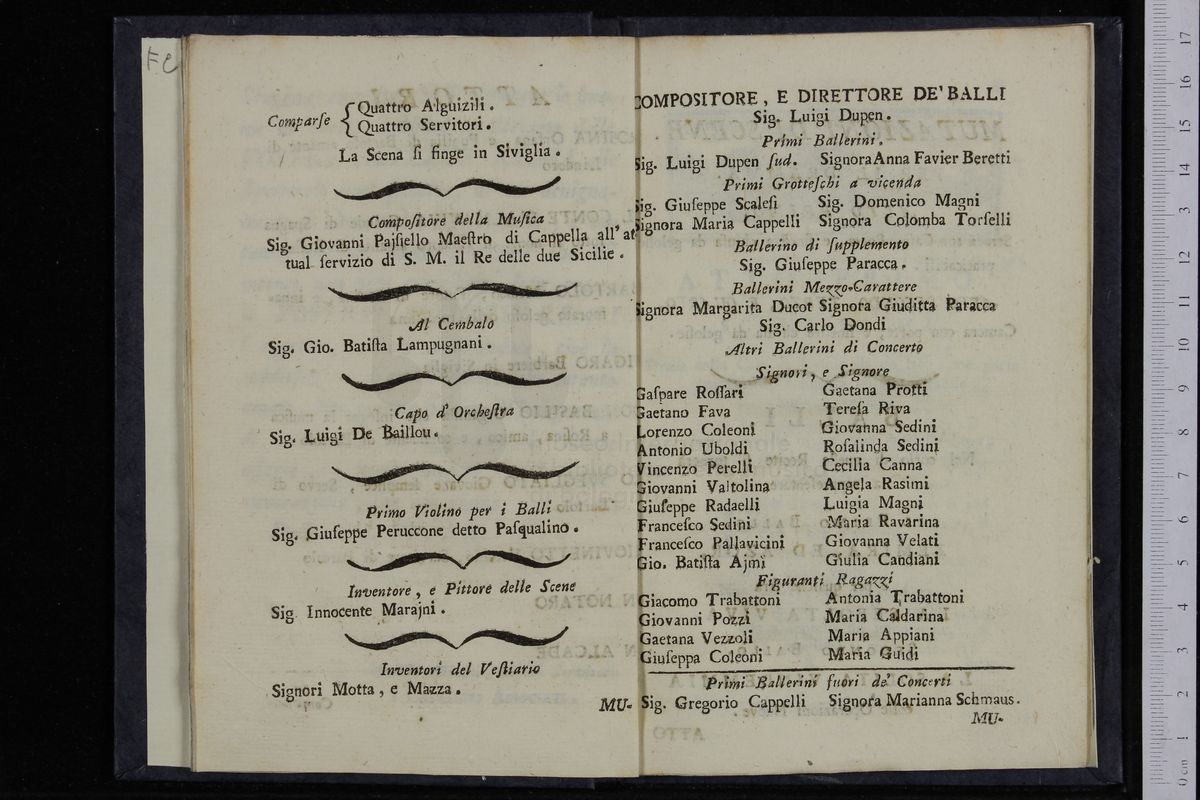 FC
Comparſe { Quattro Alguizili.
Quattro Servitori.
La Scena ſi finge in Siviglia.
Compoſitore della Muſica
Sig. Giovanni Pajſiello Maeſtro di Cappella all' at
tual ſervizio di S. M. il Re delle due Sicilie.
Al Cembalo
Sig. Gio. Batiſta Lampugnani.
Capo d' Orcheſtra
Sig. Luigi De Baillou.
Primo Violino per i Balli
Sig. Giuſeppe Peruccone detto Paſqualino.
Inventore, e Pittore delle Scene
Sig. Innocente Marajni.
Inventori del Veſtiario
Signori Motta, e Mazza.
MU-
COMPOSITORE, E DIRETTORE DE' BALLI
Sig. Luigi Dupen.
Primi Ballerini.
Sig. Luigi Dupen ſud. Signora Anna Favier Beretti
Primi Grotteſchi a vicenda
Sig. Giuſeppe Scaleſi Sig. Domenico Magni
Signora Maria Cappelli Signora Colomba Torſelli
Ballerino di ſupplemento
Sig. Giuſeppe Paracca.
Ballerini Mezzo-Carattere
Signora Margarita Ducot Signora Giuditta Paracca
Sig. Carlo Dondi
Altri Ballerini di Concerto
Signori, e Signore
Gaſpare Roſſari Gaetana Protti
Gaetano Fava Tereſa Riva
Lorenzo Coleoni Giovanna Sedini
Antonio Uboldi Roſalinda Sedini
Vincenzo Perelli Cecilia Canna
Giovanni Valtolina Angela Raſimi
Giuſeppe Radaelli Luigia Magni
Franceſco Sedini Maria Ravarina
Franceſco Pallavicini Giovanna Velati
Gio. Batiſta Ajmi Giulia Candiani
Figuranti Ragazzi
Giacomo Trabattoni Antonia Trabattoni
Giovanni Pozzi Maria Caldarina
Gaetana Vezzoli Maria Appiani
Giuſeppa Coleoni Maria Guidi
Primi Ballerini fuori de' Concerti
Sig. Gregorio Cappelli Signora Marianna Schmaus.
MU-
0 cm 1 2 3 4 5 6 7 8 9 10 11 12 13 14 15 16 17